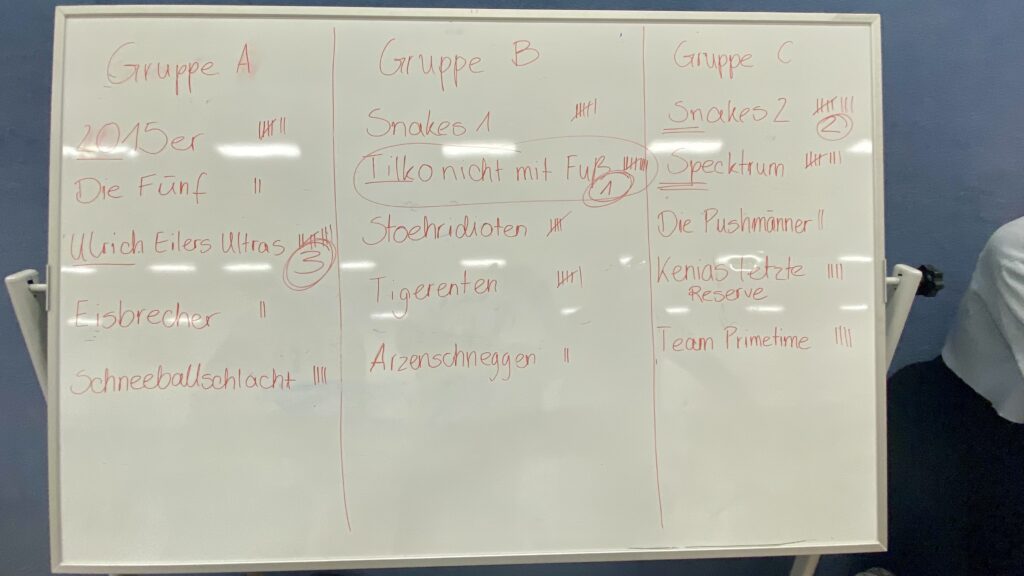 Gruppe A
2015er
Die Fünf
Ulrich Eilers Ultras
3
Eisbrecher
Schneeballschlacht
Gruppe B
Snakes 1
Tilko nicht mit Fuß
1
Stoehridioten
Tigerenten
Arzenschneggen
Gruppe C
Snakes 2
2
Specktrum
Die Pushmänner
Kenias letzte
Reserve
Team Primetime